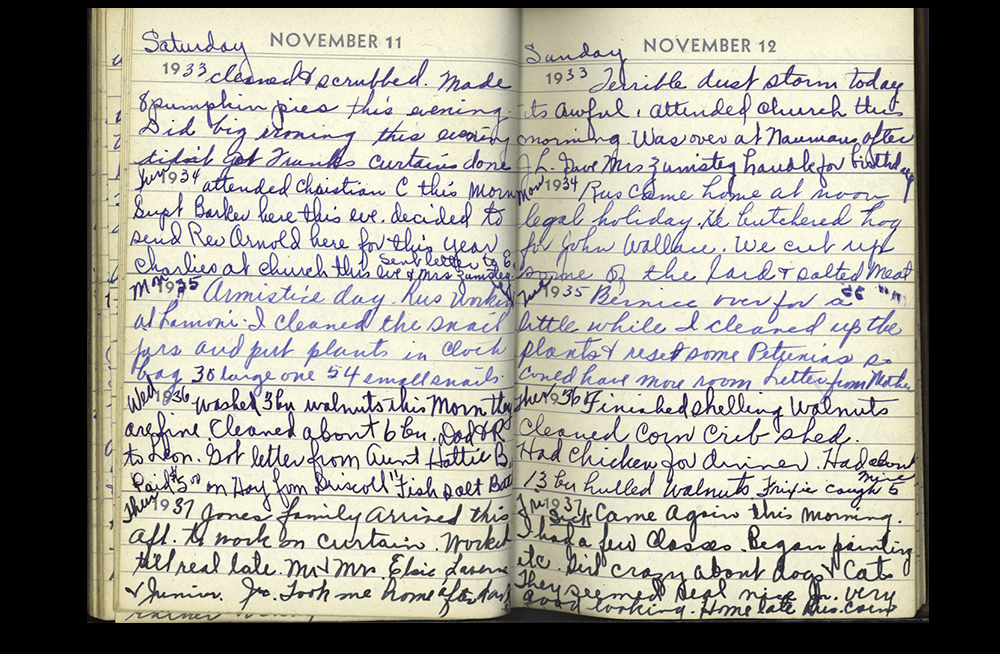 Saturday NOVEMBER 11
1933 cleaned & scrubbed. Made
8 pumpkin pies this evening
Did big ironing this evening
didn't get Franks curtains done
Sun 1934 attended Christian C this Morn
Supt Barker here this eve. decided to
send Rev Arnold here for this year
Sent letter to E.
Charlies at church this eve & Mrs Zumsteg
Mon 1935 Armistice day. Rus working
at Lamoni. I cleaned the snail
jars and put plants in clock
bag 30 large one 54 small snails.
Wed 1936 washed 3 bu walnuts this Morn they
are fine. Cleaned about 6 bu. Dad & R
to Leon. Got letter from Aunt Hattie B.
Paid $5.00 on Hay from Driscoll Fish Salt
Thur 1937 Jones family arrived this
Aft. to work on curtain. Worked
till real late. Mr & Mrs. Elsie, Laverne
& Junior. Jr. Took me home after
Sunday NOVEMBER 12
1933 Terrible dust storm today
its awful. attended church this
morning. Was over at Naumans after
J.L. Gave Mrs Zumsteg for birthday
Mon 1934 Rus came home at noon
legal holiday. He butchered hog
for John Wallace. We cut up
some of the lard & salted Meat
Tue 1935 Bernice over for a
little while I cleaned up the
plants & reset some Petunias so
could have more room Letter from Mother
Thur 1936 Finished shelling Walnuts
Cleaned Corn Crib shed.
Had Chicken for dinner. Had about
13 bu hulled Walnuts. Trixie caught 5
mice
Fri 1937 Came Again this morning.
I had a few Classes. Began painting
etc. Girl crazy about dogs & Cats
They seemed Real nice Jr. very
good looking. Home late